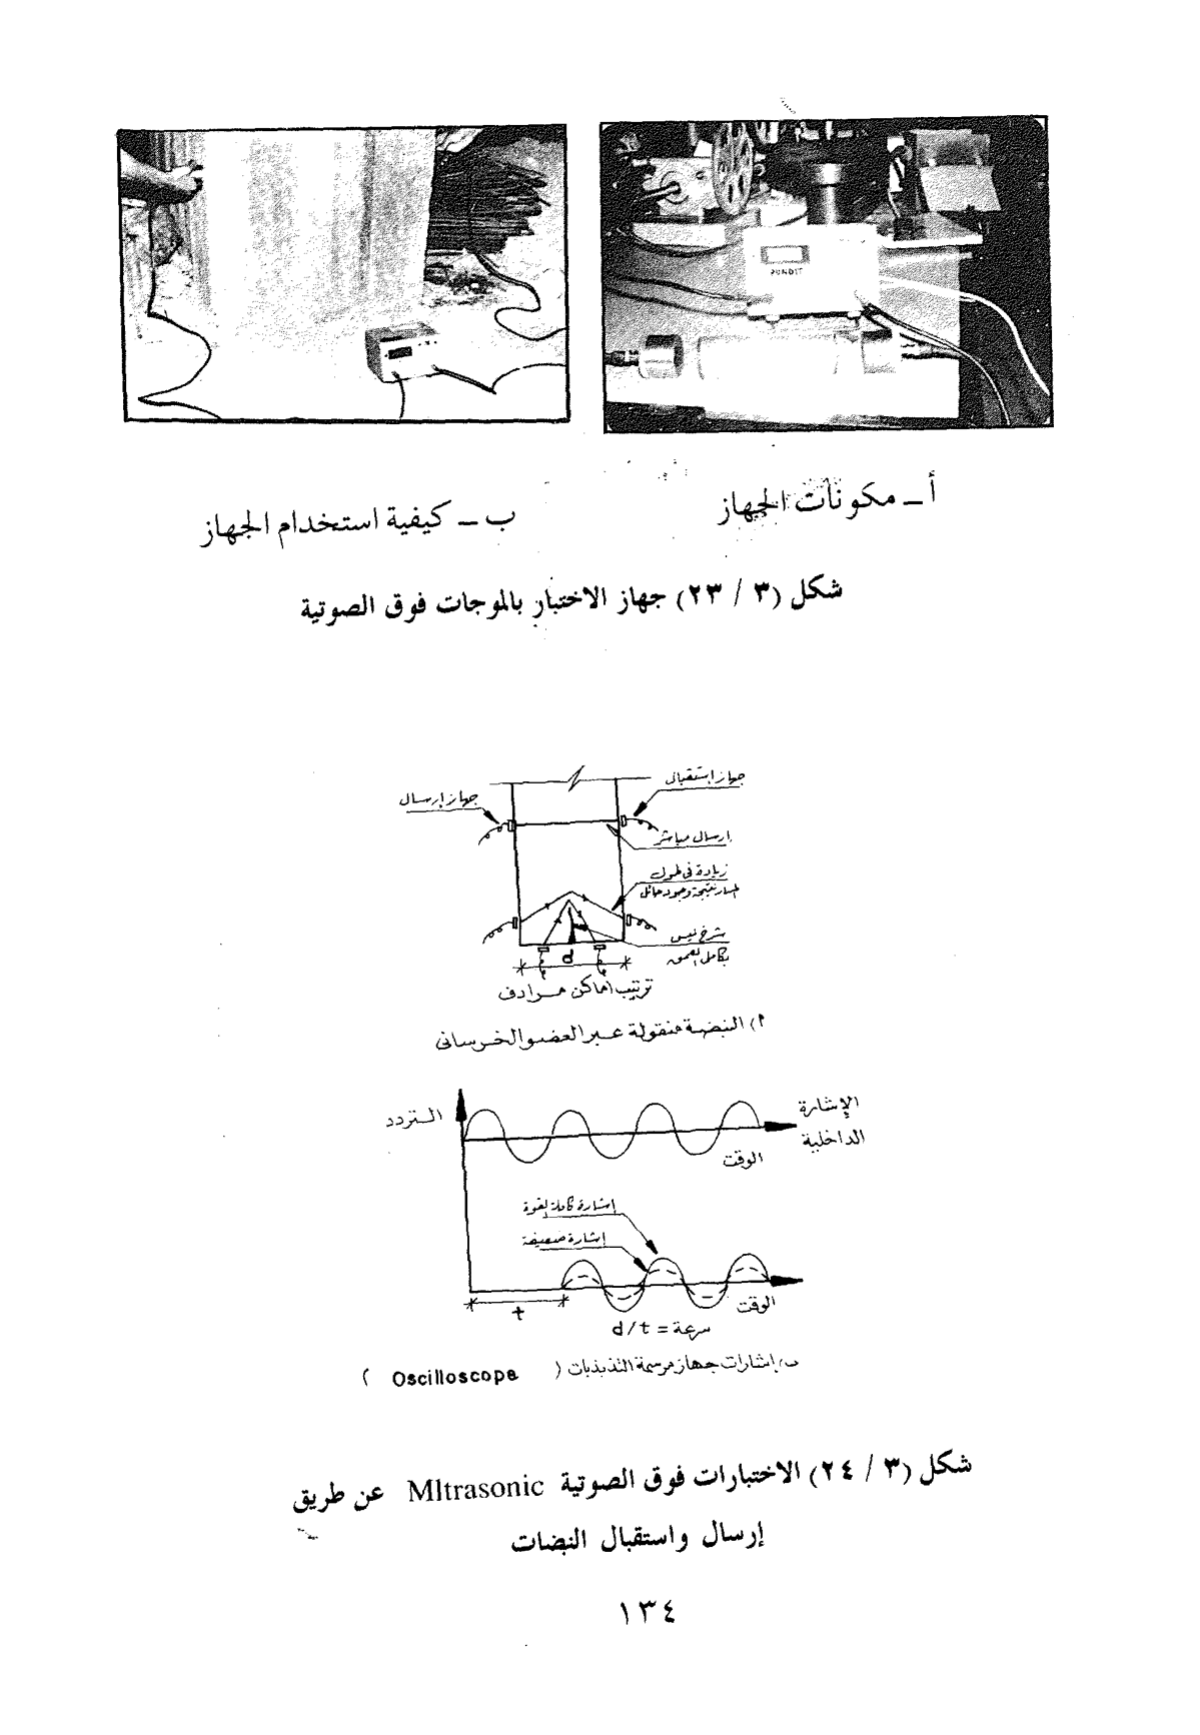 PUNDIT
أ ــ مكونات الجهاز
ب ــ كيفية استخدام الجهاز
شكل (٣ / ٢٣) جهاز الاختبار بالموجات فوق الصوتية
جهاز إستقبال
جهاز إرسال
إرسال مباشر
زيادة فى طول
المسار نتيجة وجود حائل
شرخ ليس
بكامل العمق
d
ترتيب أماكن مرادف
أ) النبضة منقولة عبر العضو الخرسانى
التردد
الإشارة
الداخلية
الوقت
إشارة كاملة القوة
إشارة ضعيفة
الوقت
t
سرعة = d/t
ب) إشارات جهاز مرسمة التذبذبات ( Oscilloscope )
شكل (٣ / ٢٤) الاختبارات فوق الصوتية Mltrasonic عن طريق
إرسال واستقبال النبضات
١٣٤